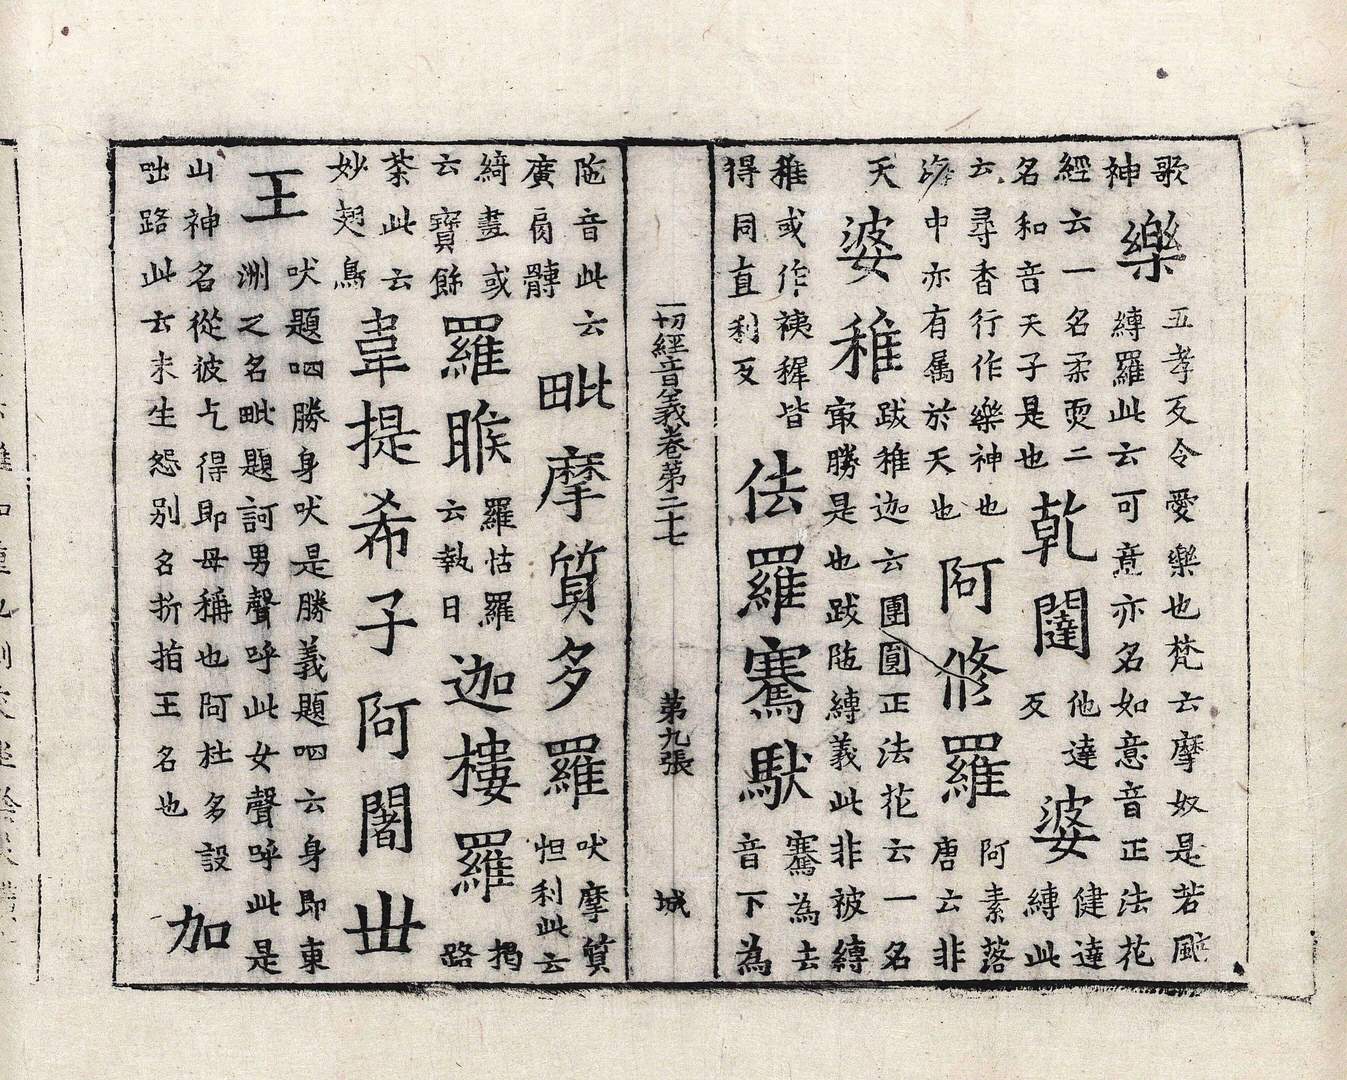 歌神樂五孝反令愛樂也梵云摩奴是若颰縛羅此云可意亦名如意音正法花
經云一名柔耎二名和音天子是也乾闥他達反婆健達縛此
云尋香行作樂神也海中亦有属於天也阿修羅阿素落唐云非
天婆稚跋稚迦云團圓正法花云一名㝡勝是也跋陁縛義此非被縛
稚或作䄺稺皆得同直利反佉羅騫馱騫為去音下為
一切經音義卷第二十七 第九張 城
陁音此云廣肩髆毗摩質多羅吠摩質怛利此云
綺畫或云寶餝羅睺羅怙羅云執日迦樓羅揭路
荼此云妙翅鳥韋提希子阿闍丗
王吠題呬勝身吠是勝義題呬云身即東洲之名毗題訶男聲呼此女聲呼此是
山神名從彼乞得即母稱也阿杜多設咄路此云未生怨別名折指王名也加